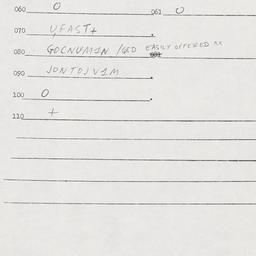 060 O 061 O
070 UFAST+
080 GOCNUM1N /GED EASILY OFFERED XX
090 JONTOJV1M
100 O
110 +